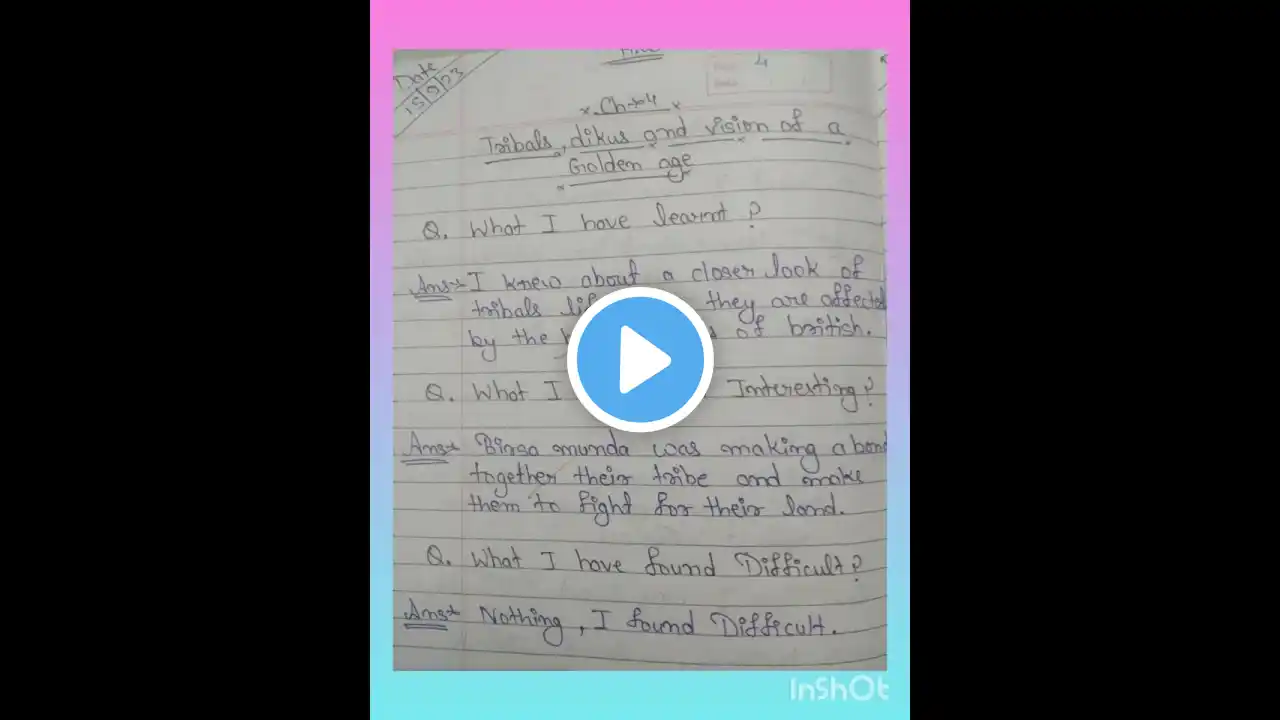 Date
15 9 23
4
Ch → 4
Tribals, dikus and vision of a
Golden age
Q. What I have learnt ?
Ans → I knew about a closer look of
tribals they are affected
by the of british.
Q. What I Interesting?
Ans → Birsa munda was making a bond
together their tribe and make
them to fight for their land.
Q. What I have found Difficult?
Ans → Nothing, I found Difficult.
InShOt